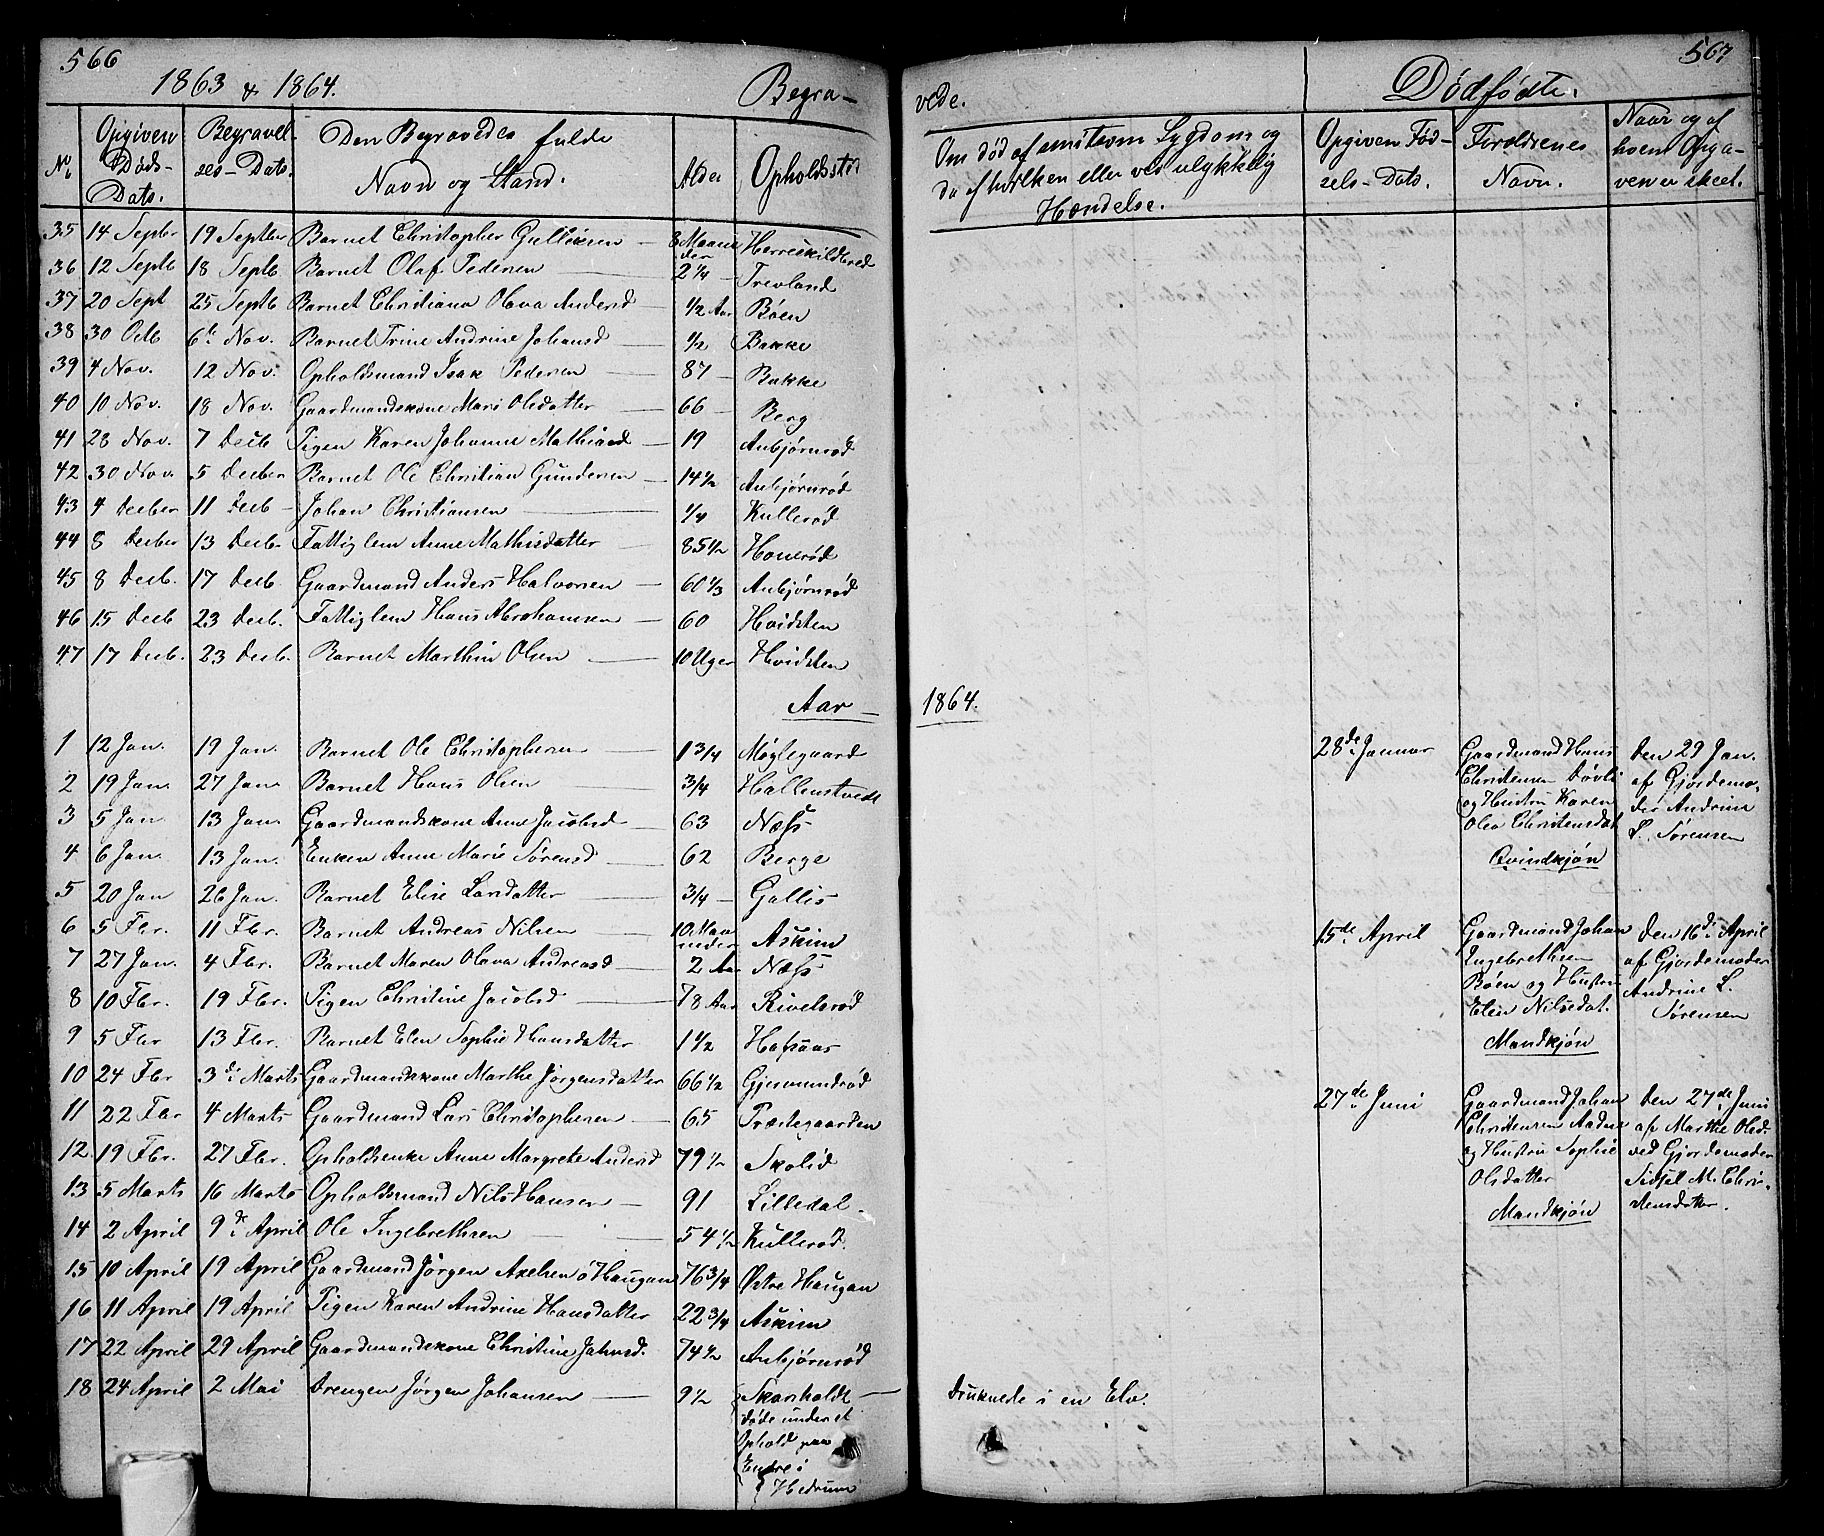 566
1863 & 1864.
Begra-
No
Opgiven Døds-Dato.
Begravelses-Dato.
Den Begravedes fulde Navn og Stand.
Alder
Opholdssted
35 14 Septbr 19 Septber Barnet Christopher Gulliksen — 8 Maaneder Herreskildbred
36 12 Septb 18 Septb Barnet Olaf Pedersen — 2 1/4 — Trevland
37 20 Sept 25 Septb Barnet Christiana Olava Andersd 1/2 Aar Bøen
38 30 Octb 6te Nov. Barnet Trine Andrine Johansd 1/2 Bakke
39 4 Nov. 12 Nov. Opholdsmand Isak Pedersen — 87 — Bakke
40 10 Nov. 18 Nov. Gaardmandskone Mari Olsdatter — 66 — Berg
41 28 Nov. 7 Decb Pigen Karen Johanne Mathiasd — 19 Anbjørnrød
42 30 Nov. 5 Decber Barnet Ole Christian Gundersen — 14 1/2 Anbjørnrød
43 4 Decber 11 Decb — Johan Christiansen — 1/4 Kullerød
44 8 Decber 13 Decb- Fattiglem Anne Mathisdatter — 85 1/2 Honerød
45 8 Decb. 17 Decb. Gaardmand Anders Halvorsen — 60 1/3 Anbjørnrød
46 15 Decb 23 Decb. Fattiglem Hans Abrahamsen — 60 Hvidsten
47 17 Decb. 23 Decb. Barnet Marthin Olsen — 10 Uger Hvidsten
Aar —
1 12 Jan. 19 Jan. Barnet Ole Christophersen — 1 3/4 Møglegaard
2 19 Jan. 27 Jan. Barnet Hans Olsen — 3/4 Hallenstvedt
3 5 Jan 13 Jan. Gaardmandskone Anne Jacobsd — 63 Næss
4 6 Jan. 13 Jan. Enken Anne Marie Sørensd — 62 Berge
5 20 Jan 26 Jan. Barnet Elise Larsdatter — 3/4 — Gallis
6 5 Fbr. 11 Fbr. Barnet Andreas Nilsen — 10 Maaneder Askim
7 27 Jan. 4 Fbr. Barnet Maren Olava Andreasd — 2 Aar Næss
8 10 Fbr. 19 Fbr. Pigen Christine Jacobsd — 78 Aar Rivelsrød
9 5 Fbr 13 Fbr. Barnet Elen Sophie Hansdatter 1 1/2 Hafsaas
10 24 Fbr 3di Marts Gaardmandskone Marthe Jørgensdatter 66 1/2 Gjermundrød
11 22 Fbr 4 Marts Gaardmand Lars Christophersen — 65 Præstegaarden
12. 19 Fbr. 27 Fbr. Opholdsenke Anne Margrete Andersd 79 1/2 Skolid
13 5 Marts 16 Marts Opholdsmand Nils Hansen — 91 Lilledal.
14 2 April 9de April Ole Ingebrethsen — 54 1/2 Kullerød.
15 10 April 19 April Gaardmand Jørgen Axelsen ø Haugan 76 3/4 Østre Haugan
16 11 April 19 April Pigen Karen Andrine Hansdatter 22 3/4 Askim
17 22 April 29 April Gaardmandskone Christine Jahnsd. 74 1/2 Anbjørnrød
18 24 April 2 Mai Drengen Jørgen Johansen — 9 1/2 Skarsholdt —
døde under et
Ophold paa
Endre i
Hedrum
567
vede.
Dødfødte.
Om død af smitsom Sygdom og
da af hvilken eller ved ulykkelig
Hændelse.
Opgiven Fødsels-Dato.
Forældrenes Navn.
Naar og af
hvem Opga-
ven er skeet.
1864.
28de Januar
Gaardmand Hans
Christensen Døvle
og Hustru Karen
Olea Christensdat
Qvindkjøn
Den 29 Jan.
af Gjordemo-
der Andrine
L. Sørensen
15de April
Gaardmand Johan
Engebrethsen
Bøen og Hustru
Elen Nilsdat.
Mandkjøn
Den 16de April
af Gjordemoder
Andrine L.
Sørensen
27de Juni
Gaardmand Johan
Christensen Aadne
og Hustru Sophie
Olsdatter
Mandkjøn
Den 27de Juni
af Marthe Olsd.
ved Gjordemoder
Sidsel M. Chris-
tensdatter.
Druknede i en Elv.